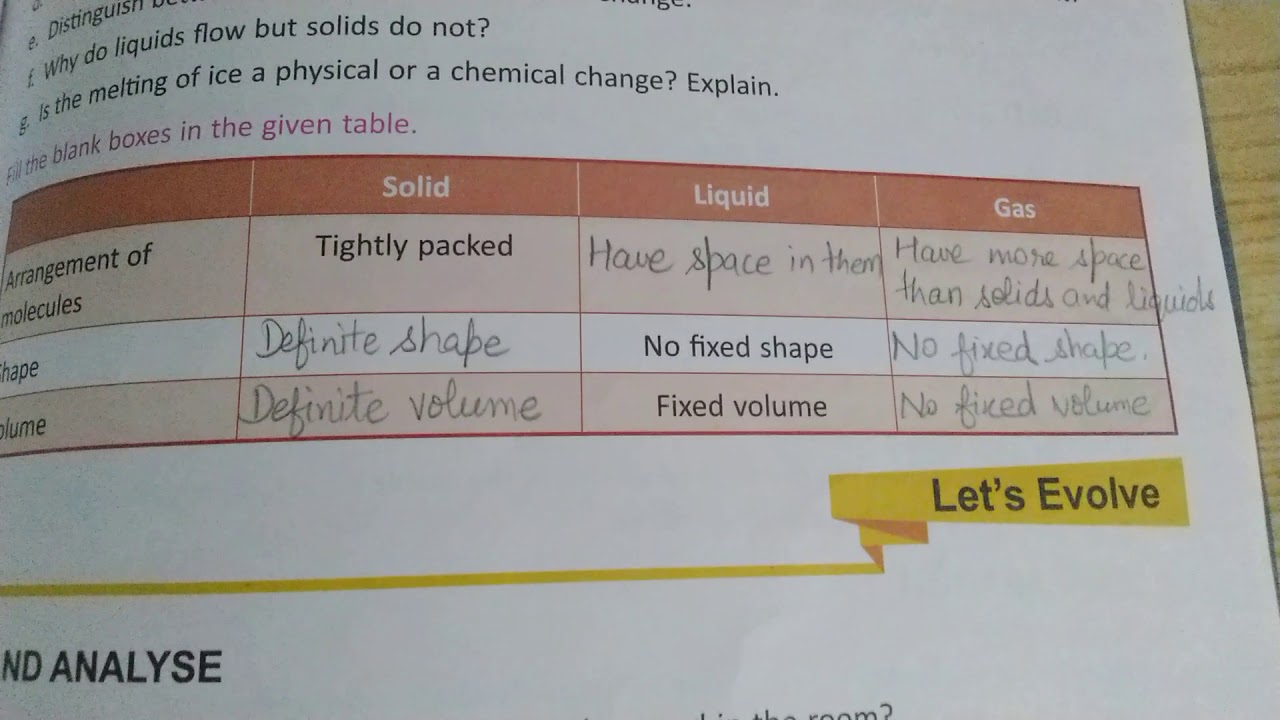 e. Distinguish
f. Why do liquids flow but solids do not?
g. Is the melting of ice a physical or a chemical change? Explain.
Fill the blank boxes in the given table.
Solid Liquid Gas
Arrangement of molecules Tightly packed Have space in them Have more space than solids and liquids
hape Definite shape No fixed shape No fixed shape.
olume Definite volume Fixed volume No fixed volume
Let's Evolve
ND ANALYSE
in the room?